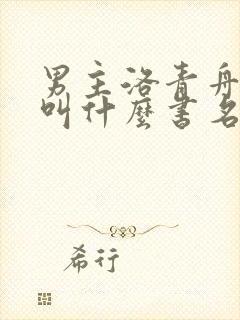 男主洛青舟
叫什麼書名
希行